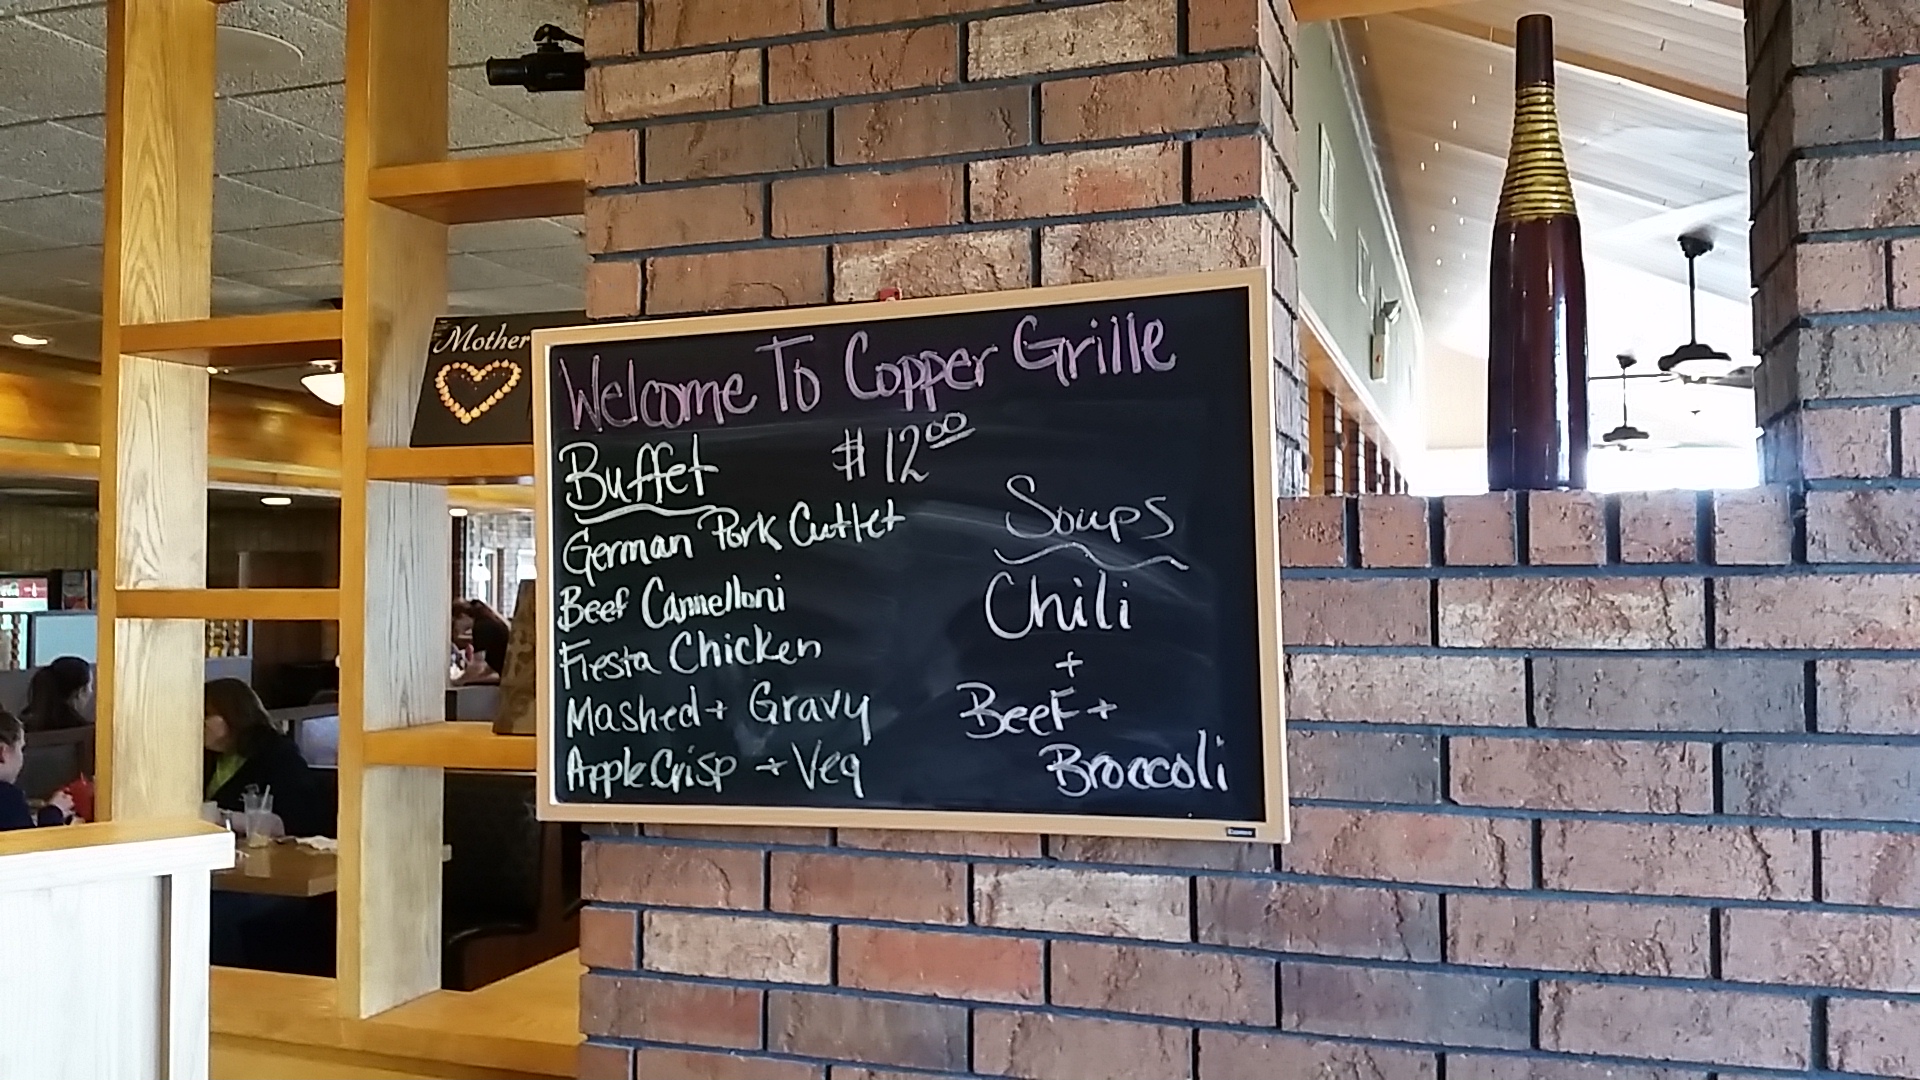 Mother
Welcome To Copper Grille
Buffet $12.00
German Pork Cutlet
Beef Cannelloni
Fiesta Chicken
Mashed + Gravy
Apple Crisp + Veg
Soups
Chili
+
Beef +
Broccoli